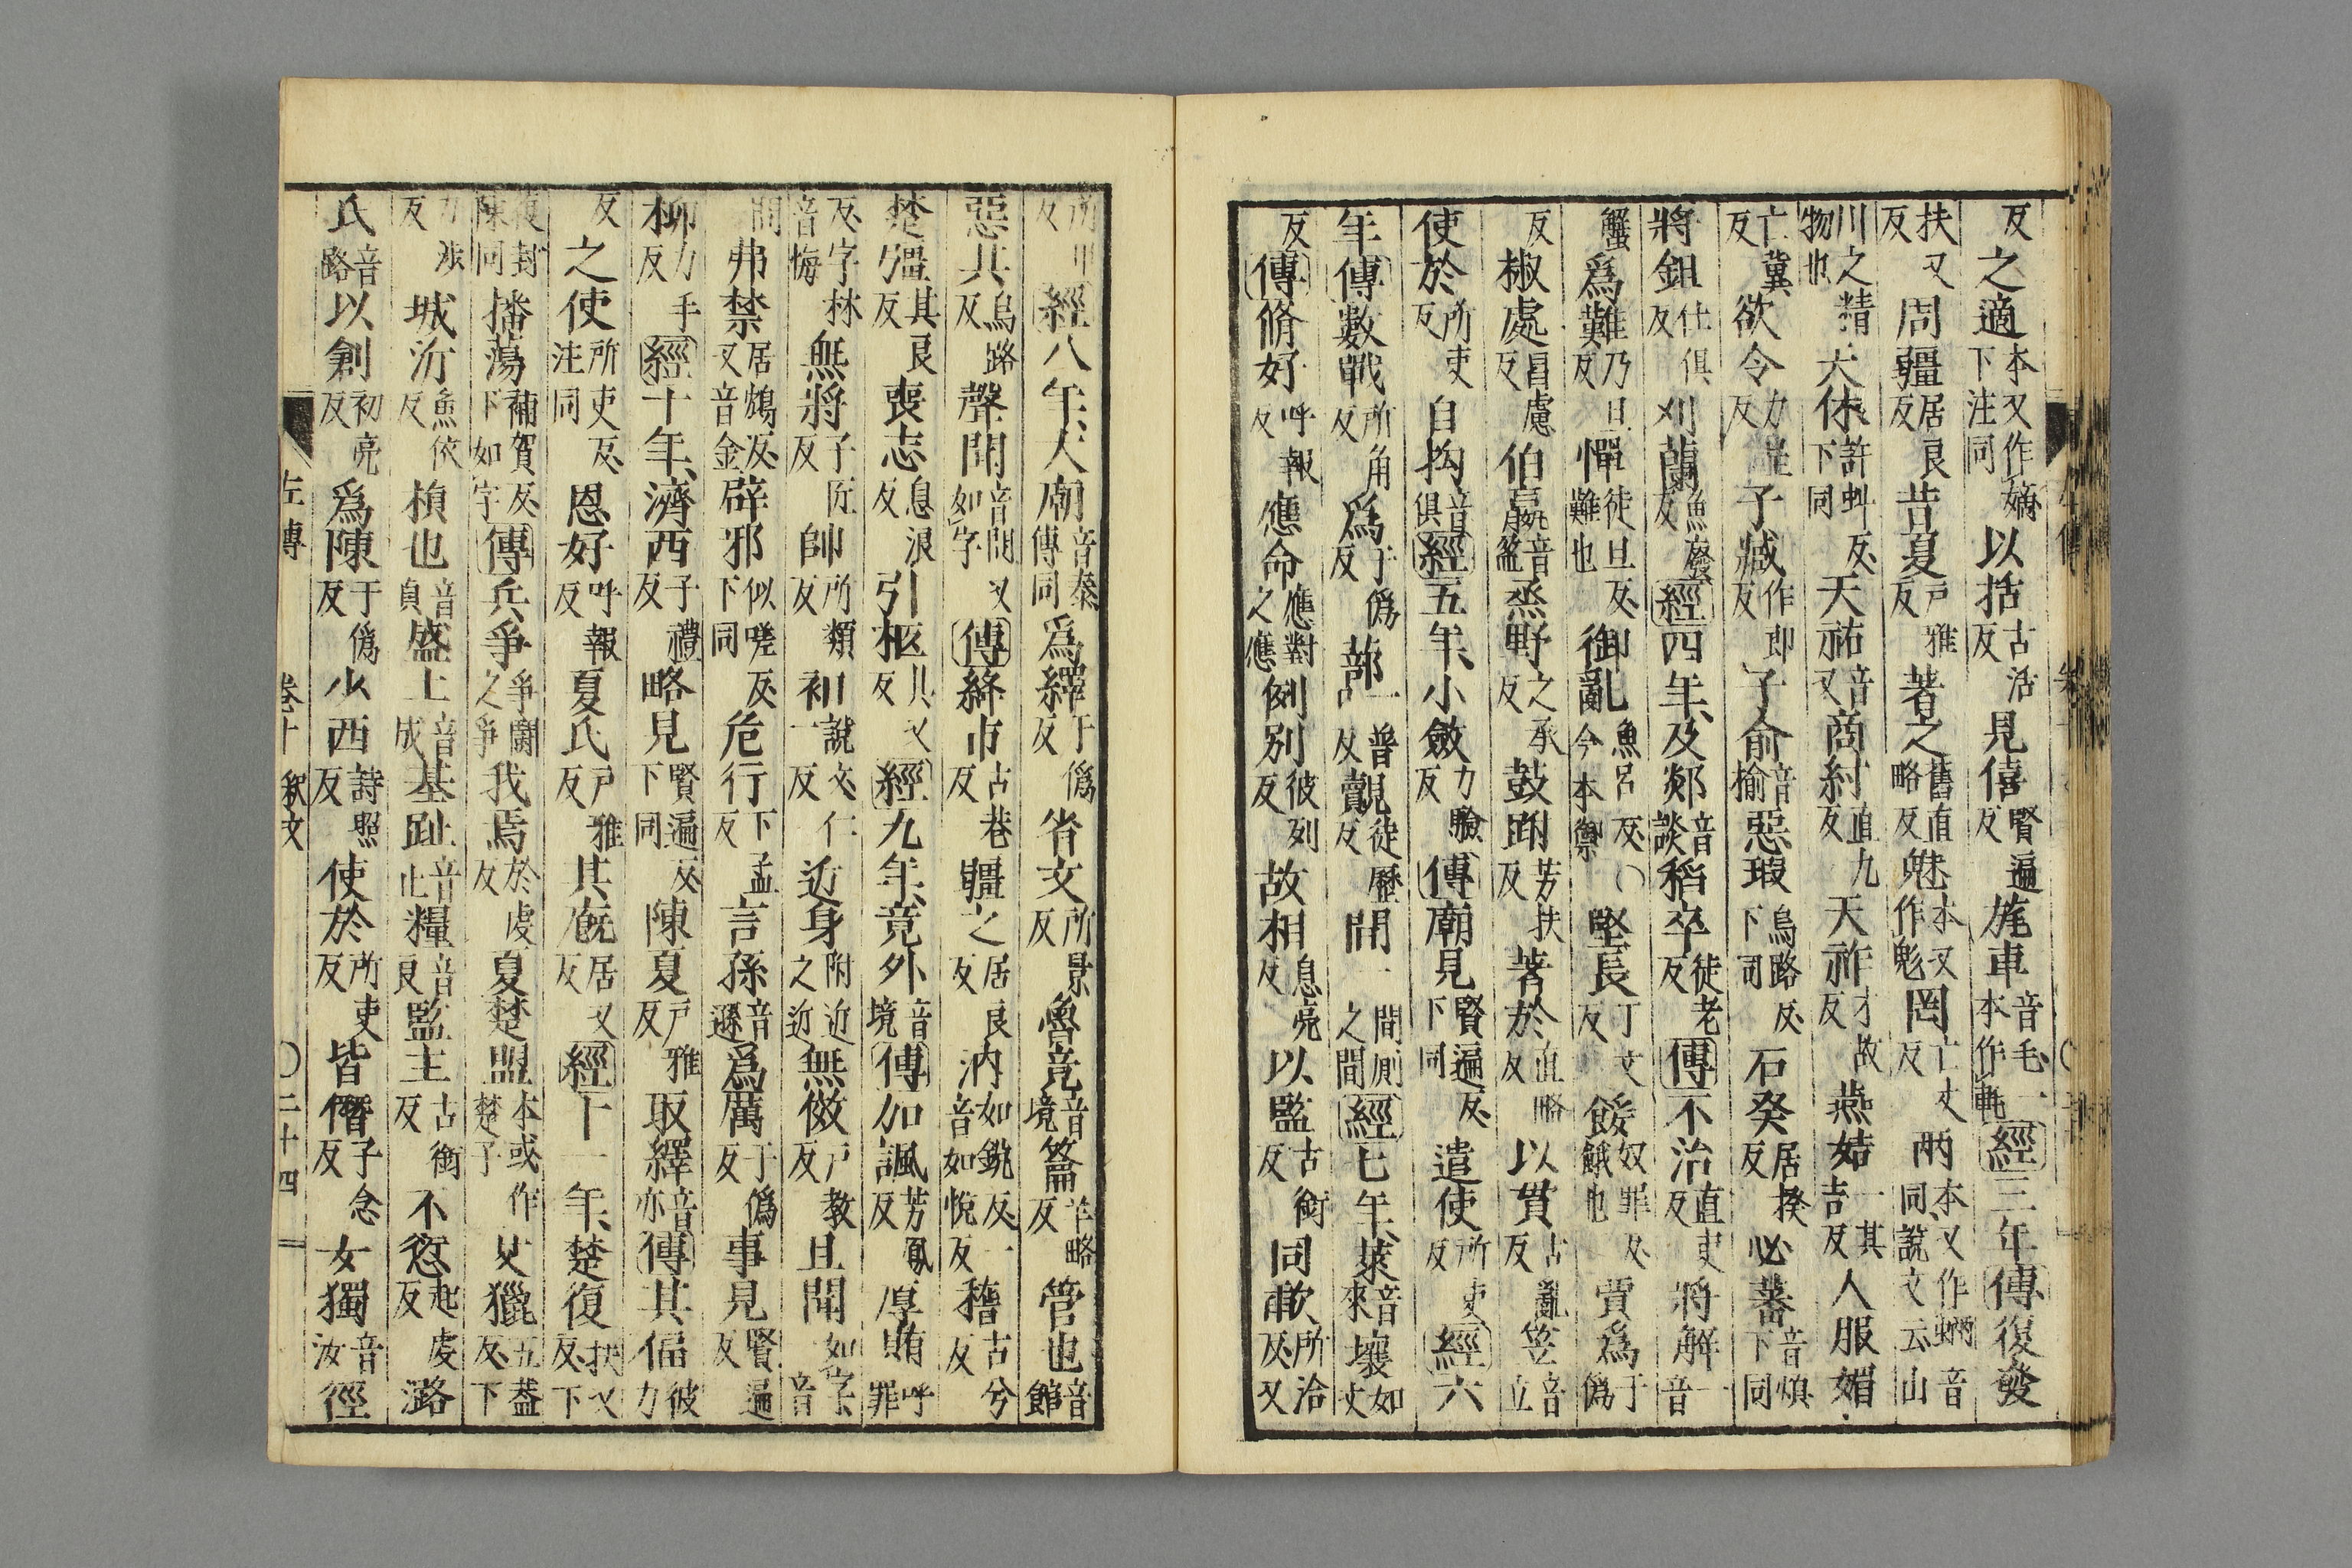 反之適本又作嫡下注同以括古活反見僖賢遍反旄車音毛一本作軞經三年傳復發
扶又反周疆居良反昔夏戶雅反著之舊直略反魅本又作鬽罔亡丈反兩本又作蜽音同說文云山
川之精物也天休許虯反下同天祐音又商紂直九反天祚才故反燕姞其吉反人服媚
亡冀反欲令力呈反子臧作郎反子俞音榆惡瑕烏路反下同石癸居揆反必蕃音煩下同
將鉏仕俱反刈蘭魚廢反經四年及郯音談稻卒徒老反傳不治直吏反將解一音
蟹爲難乃旦反憚徒旦反難也御亂魚呂反○今本禦堅長丁丈反餒奴罪反餓也賈爲于僞
反椒處昌慮反伯嬴音盈烝野之承反鼓跗芳扶反著於直略反以貫古亂反笠音立
使於所吏反自拘音俱經五年小斂力驗反傳廟見賢遍反下同遣使所吏反經六
年傳數戰所角反爲于僞反蔀一普口反覿見徒歷反間一間廁之間經七年萊音來壞如丈
反傳脩好呼報反應命應對之應例別彼列反故相息亮反以監古銜反同歃所洽反又
所甲反經八年大廟音泰傳同爲繹于僞反省文所景反魯竟音境籥羊略反管也音館
惡其烏路反聲聞音問又如字傳絳市古巷反疆之居良反汭如銳反一音如悅反稽古兮反
楚殭其良反喪志息浪反引柩其又反經九年竟外音境傳加諷芳鳳反厚賄呼罪
反字林音悔無將子匠反帥所類反衵說文仁一反近身附近之近無傚戶教反且聞如字音
問弗禁居鴆反又音金辟邪似嗟反下同危行下孟反言孫音遜爲厲于僞反事見賢遍反
柳力手反經十年濟西子禮反略見賢遍反下同陳夏戶雅反取繹音亦傳其偪彼力
反之使所吏反注同恩好呼報反夏氏戶雅反其廐居又反經十一年楚復扶又反下
復封陳同播蕩補賀反下如字傳兵爭爭鬭之爭我焉於虔反夏楚盟本或作楚子艾獵五蓋反下
力涉反城沂魚依反楨也音貞盛土音成基趾音止糧音良監主古銜反不愆起虔反潞
氏音路以創初亮反爲陳于僞反少西詩照反使於所吏反皆僭子念反女獨音汝徑
左傳 卷十 釋文 ○二十四